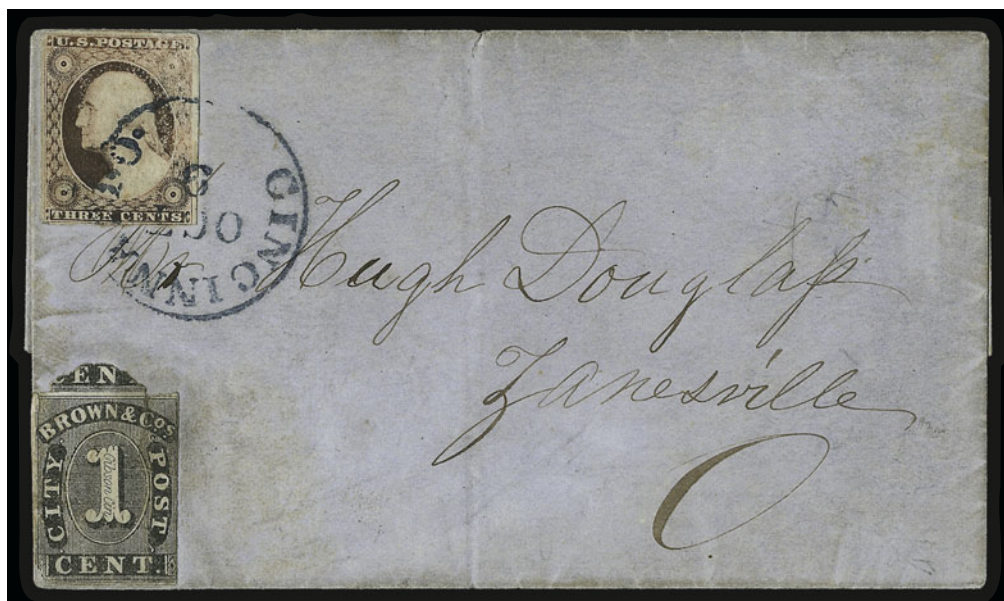 U.S. POSTAGE
THREE CENTS
CINCINNA
O.
8
Mr Hugh Douglass
Zanesville
O
CEN
BROWN & CO'S
CITY POST
1
CENT.